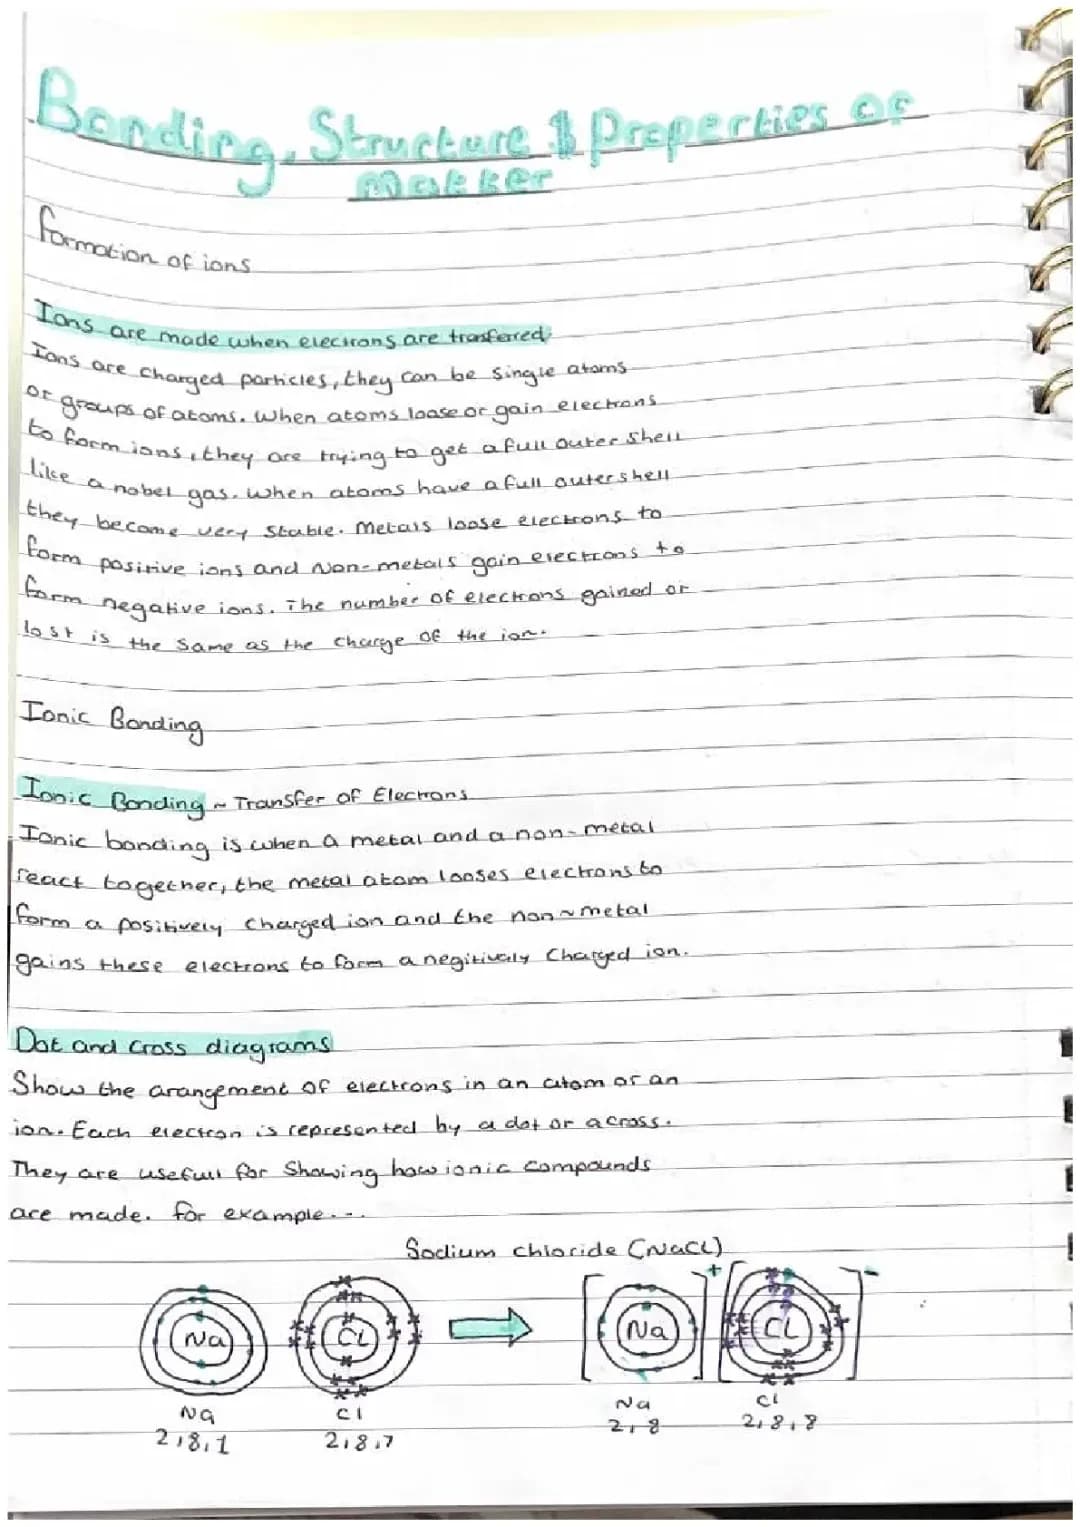 Bonding, Structure & Properties of
matter
formation of ions
Ions are made when electrons are transfered.
Ions are charged particles, they can be single atoms
or groups of atoms. When atoms loose or gain electrons
to form ions, they are trying to get a full outer shell
like a nobel gas. When atoms have a full outer shell
they become very stable. Metals loose electrons to
form positive ions and Non-metals gain electrons to
form negative ions. The number of electrons gained or
lost is the same as the charge of the ion.
Ionic Bonding
Ionic Bonding ~ Transfer of Electrons
Ionic bonding is when a metal and a non-metal
react together, the metal atom looses electrons to
form a positively charged ion and the non~metal
gains these electrons to form a negitivaly charged ion.
Dot and cross diagrams
Show the arangement of electrons in an atom or an
ion. Each electron is represented by a dot or a cross.
They are usefull for showing how ionic compounds
are made. for example...
Sodium chloride (NaCl)
Na Cl Na + Cl -
Na Cl Na Cl
2,8,1 2,8,7 2,8 2,8,8